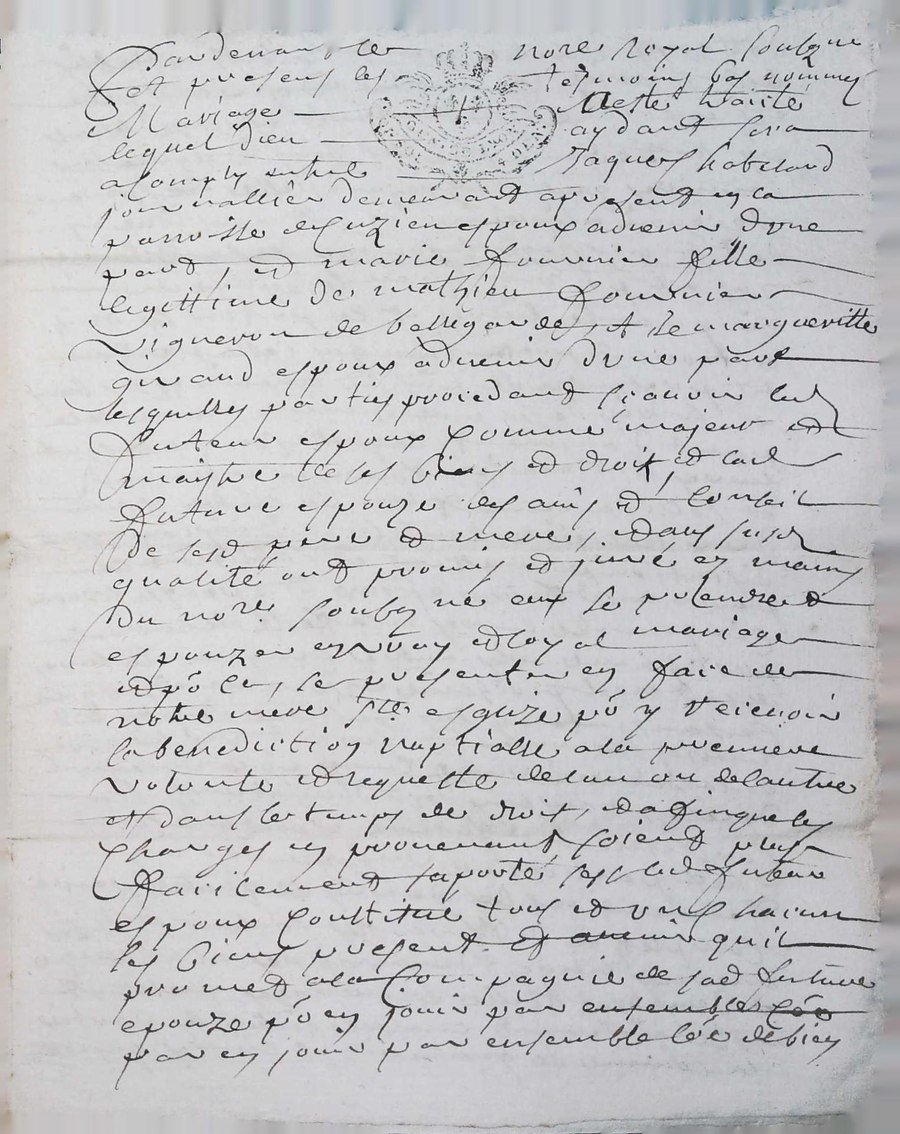 Pardevant le nore royal soubzne
et presens les tesmoins bas nommes
Mariage a este traité
lequel Dieu aydant sera
acomply entre Jaques habitard
journallier demeurant apresent en la
parroisse de espoux advenir dune
part, et marie fournier fille
legittime de mathieu fournier
vigneron de bellegarde, & de margueritte
giraud espouze advenir dune part
lesquelles parties procedant sçavoir led
futeur espoux comme majeur et
maistre de ses biens et droit, et lad
future espouze des avis et conseil
de sesd pere et mere, et dans susd
qualité ont promis et juré es mains
du nore soubzne eux se prendre et
espouzer en vray et loyal mariage
et po ce, se presenter en face de
notre mere ste esglize po y recevoir
la benediction nuptialle a la premiere
volonte et requette de lun ou de lautre
et dans le temps de droit, et afin que les
charges en provenant soient plus
facilement suporté led futeur
espoux constitue tous et uns chacuns
les biens present et avenir quil
promet a la compagnie de sad future
epouze po en jouir par ensembles
par en jouir par ensemble de bien